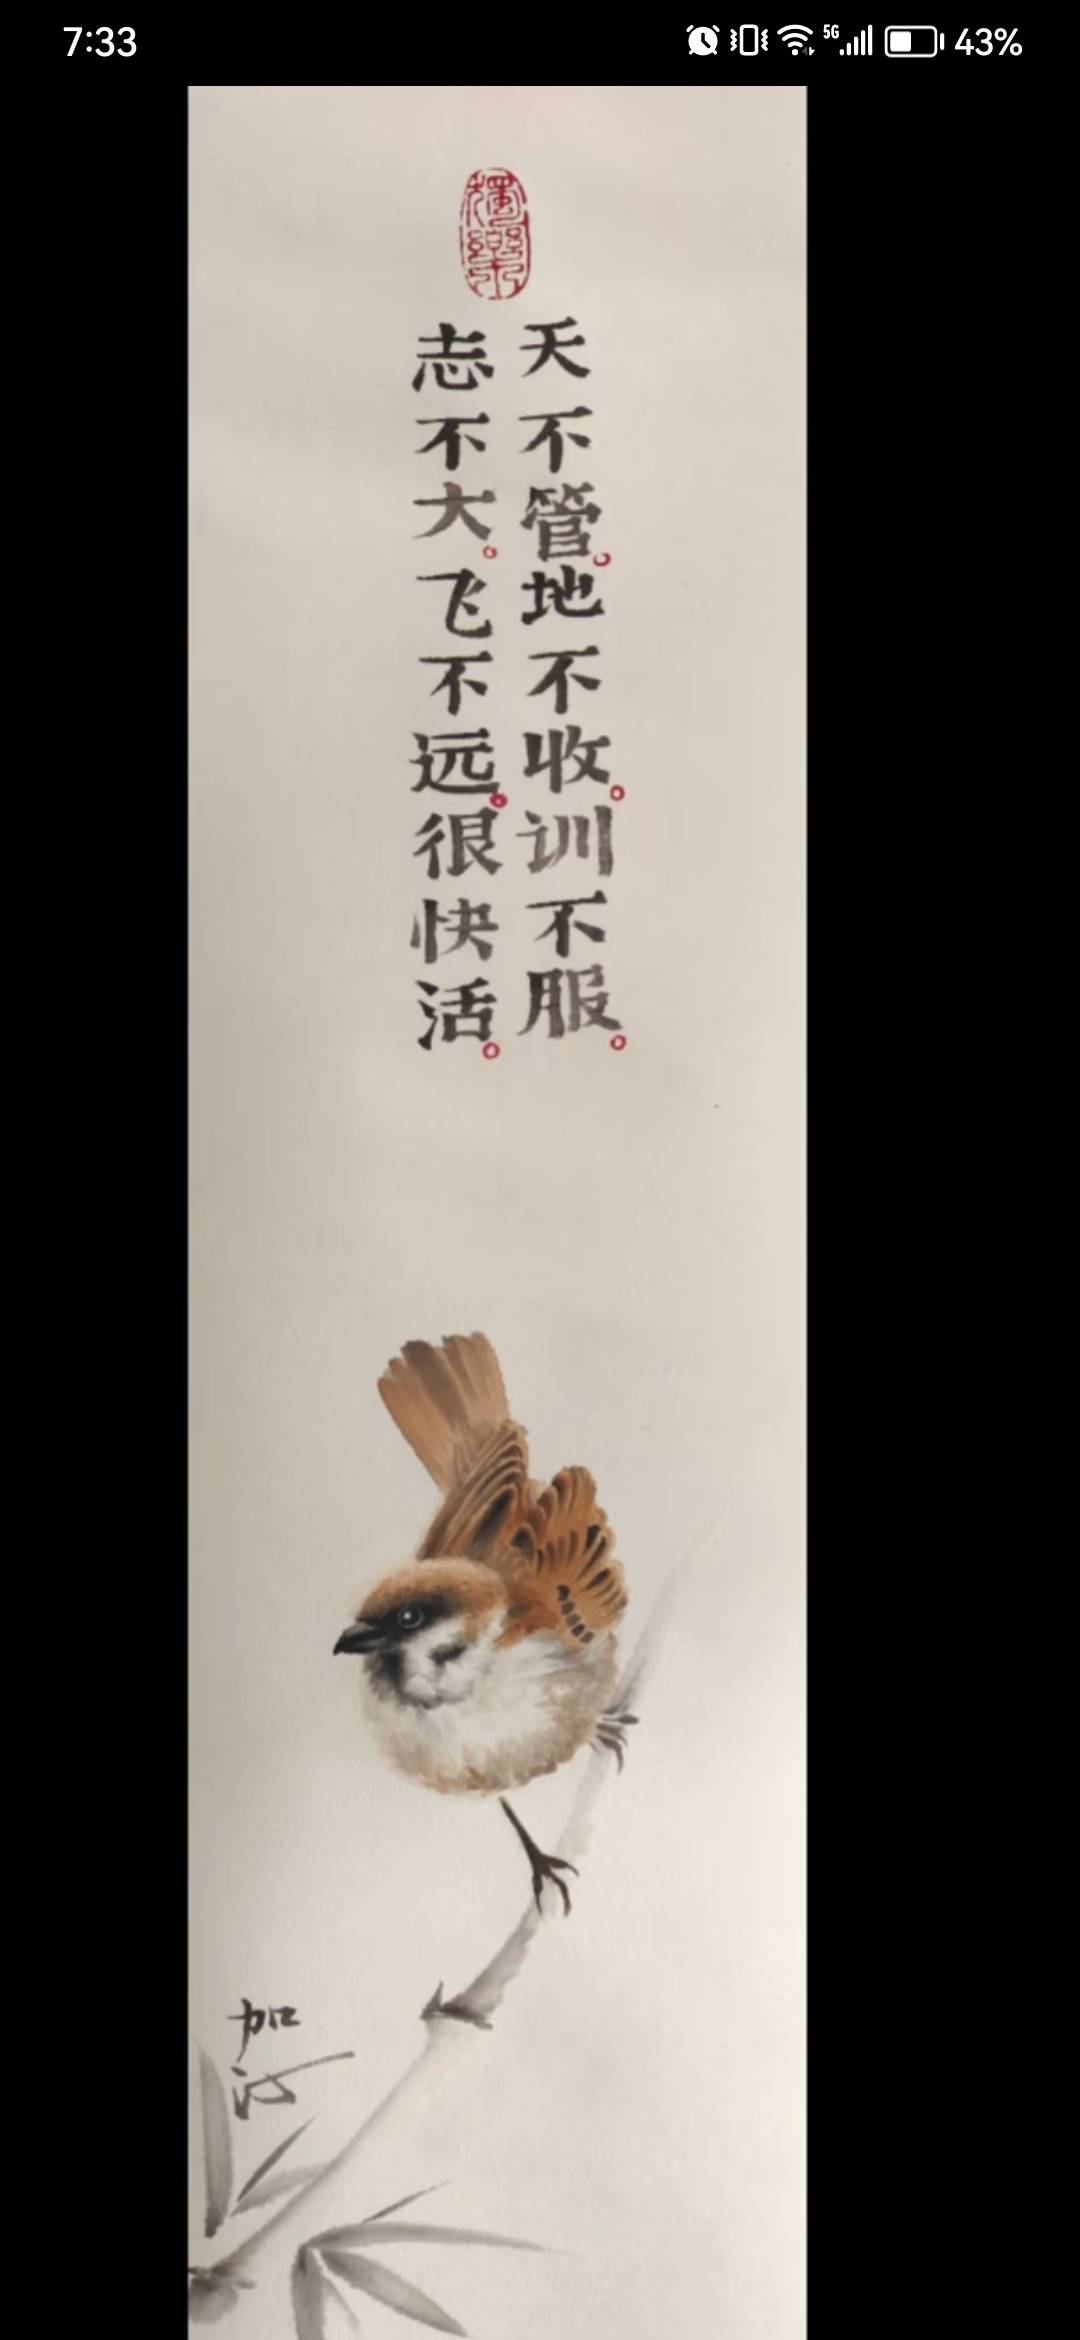 7:33
5G
43%
獨樂
天不管。地不收。训不服。
志不大。飞不远。很快活。